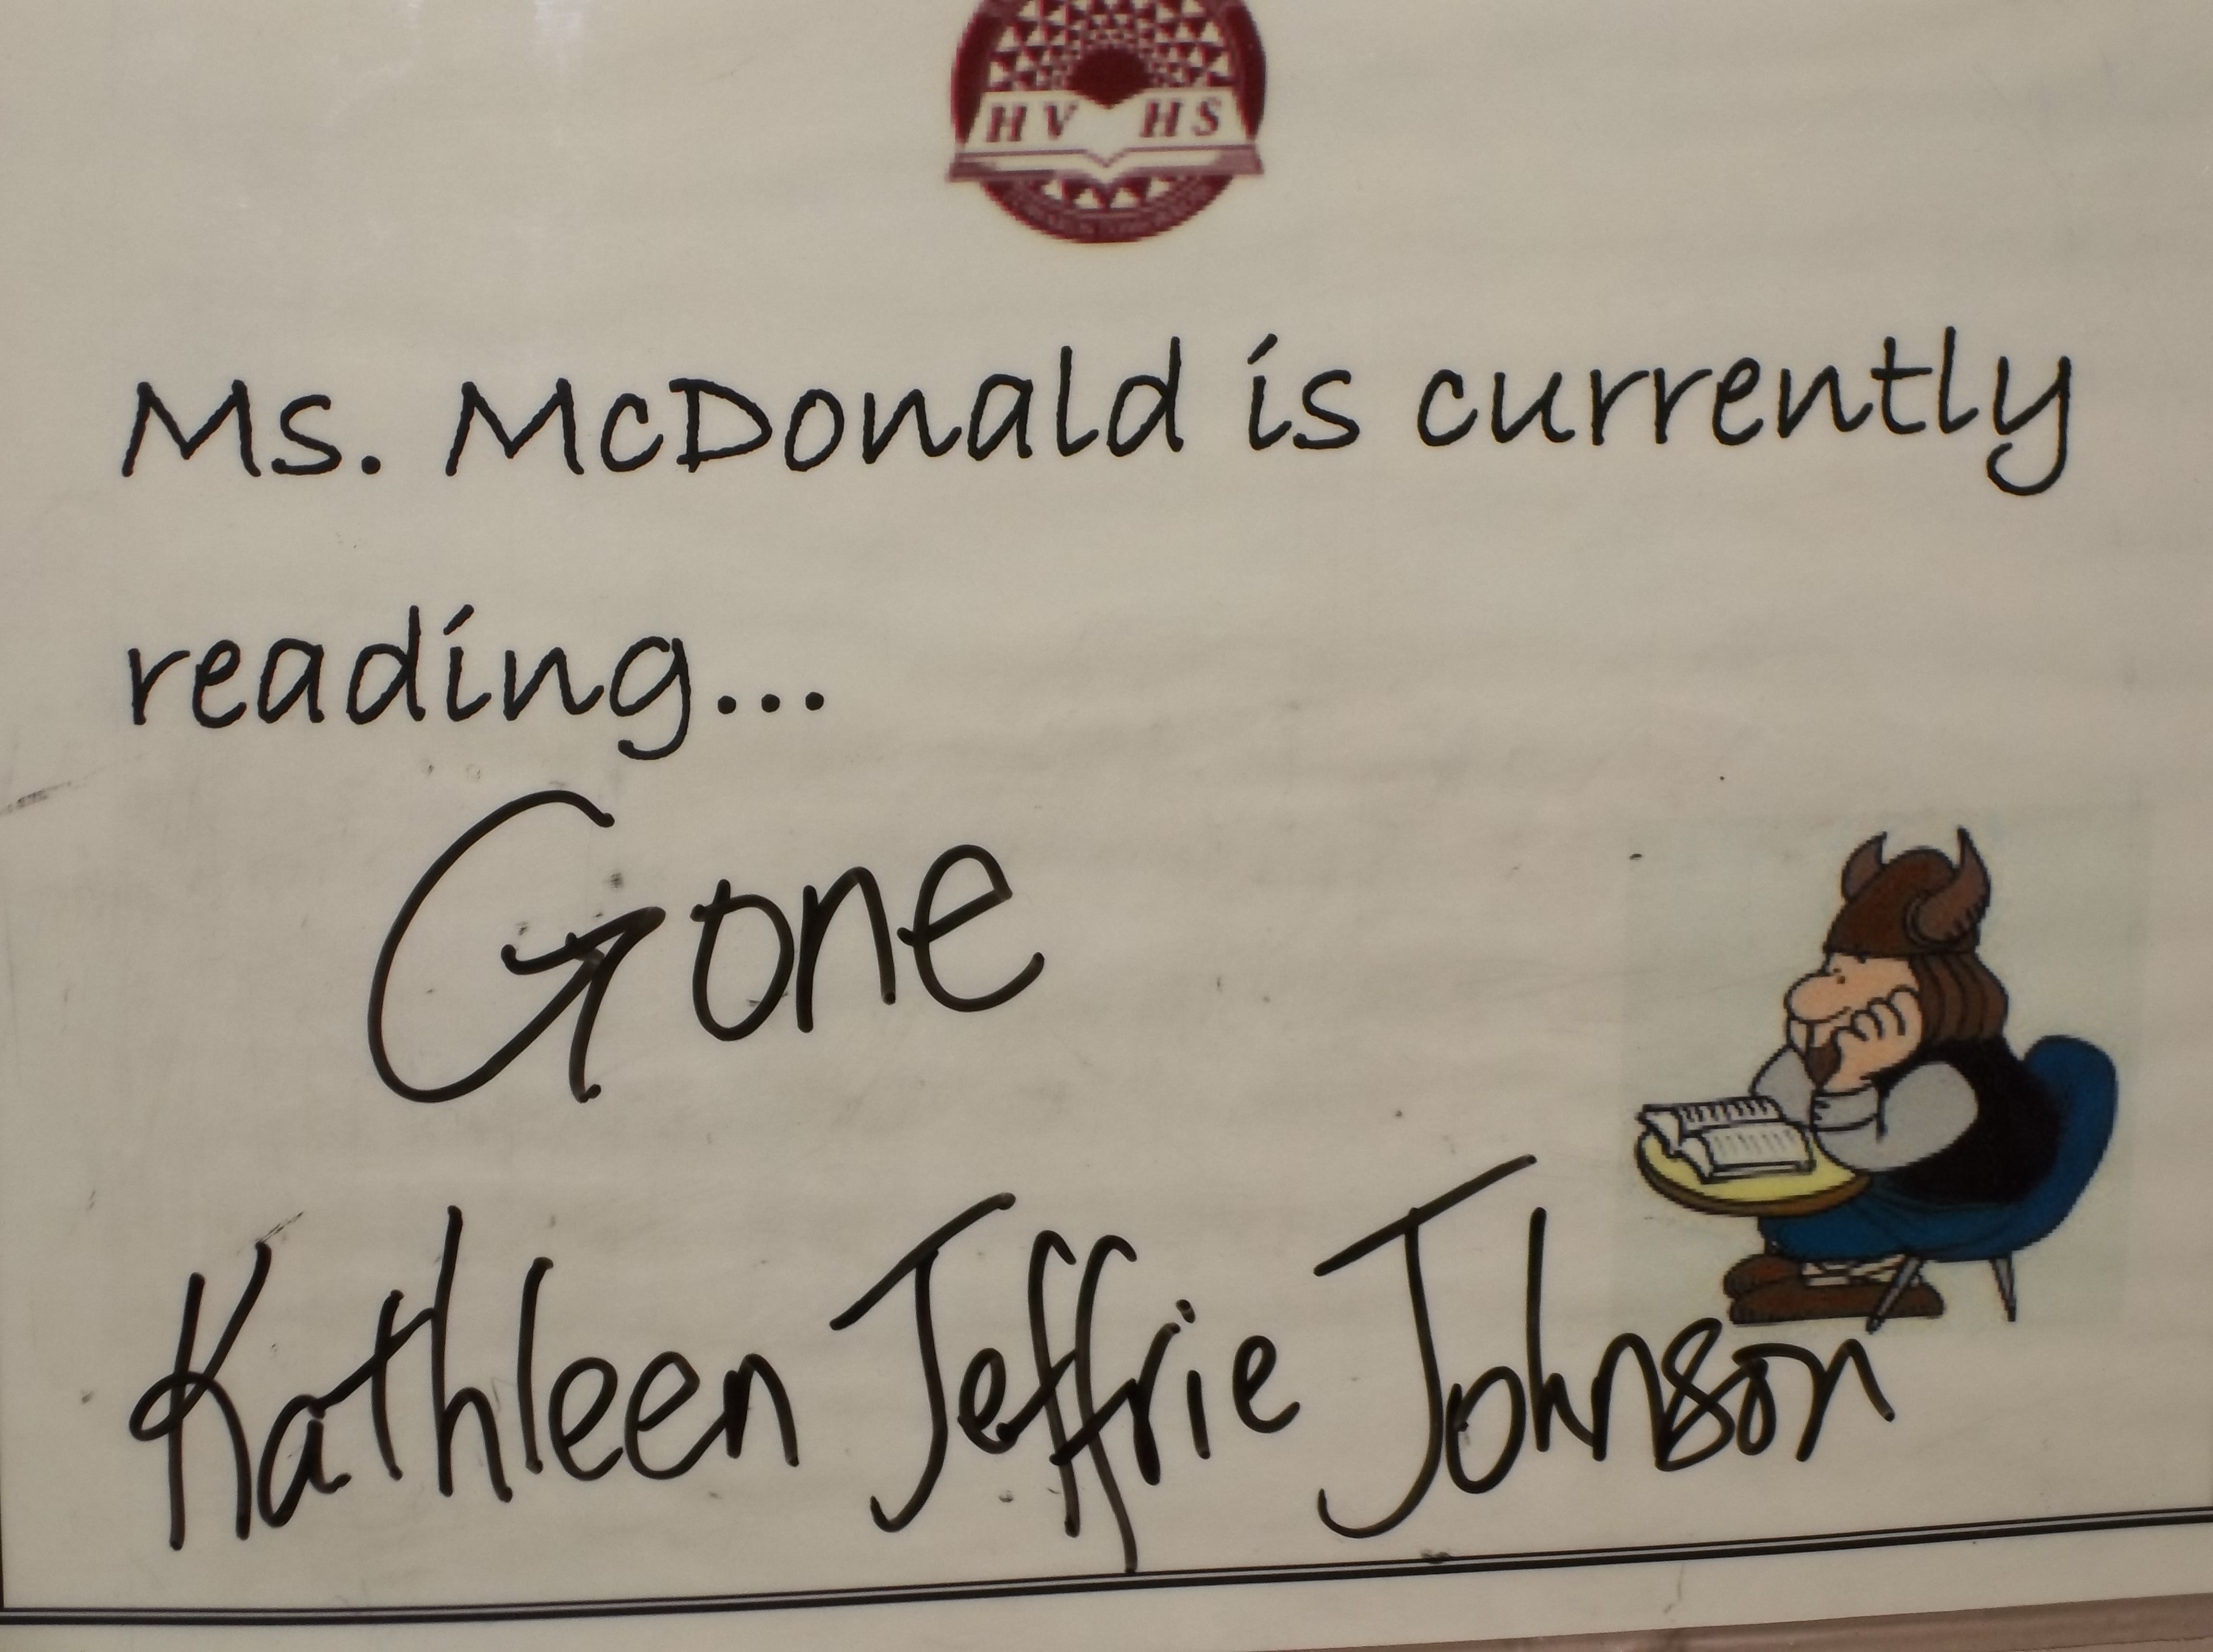 HV HS
Ms. McDonald is currently
reading...
Gone
Kathleen Jeffrie Johnson